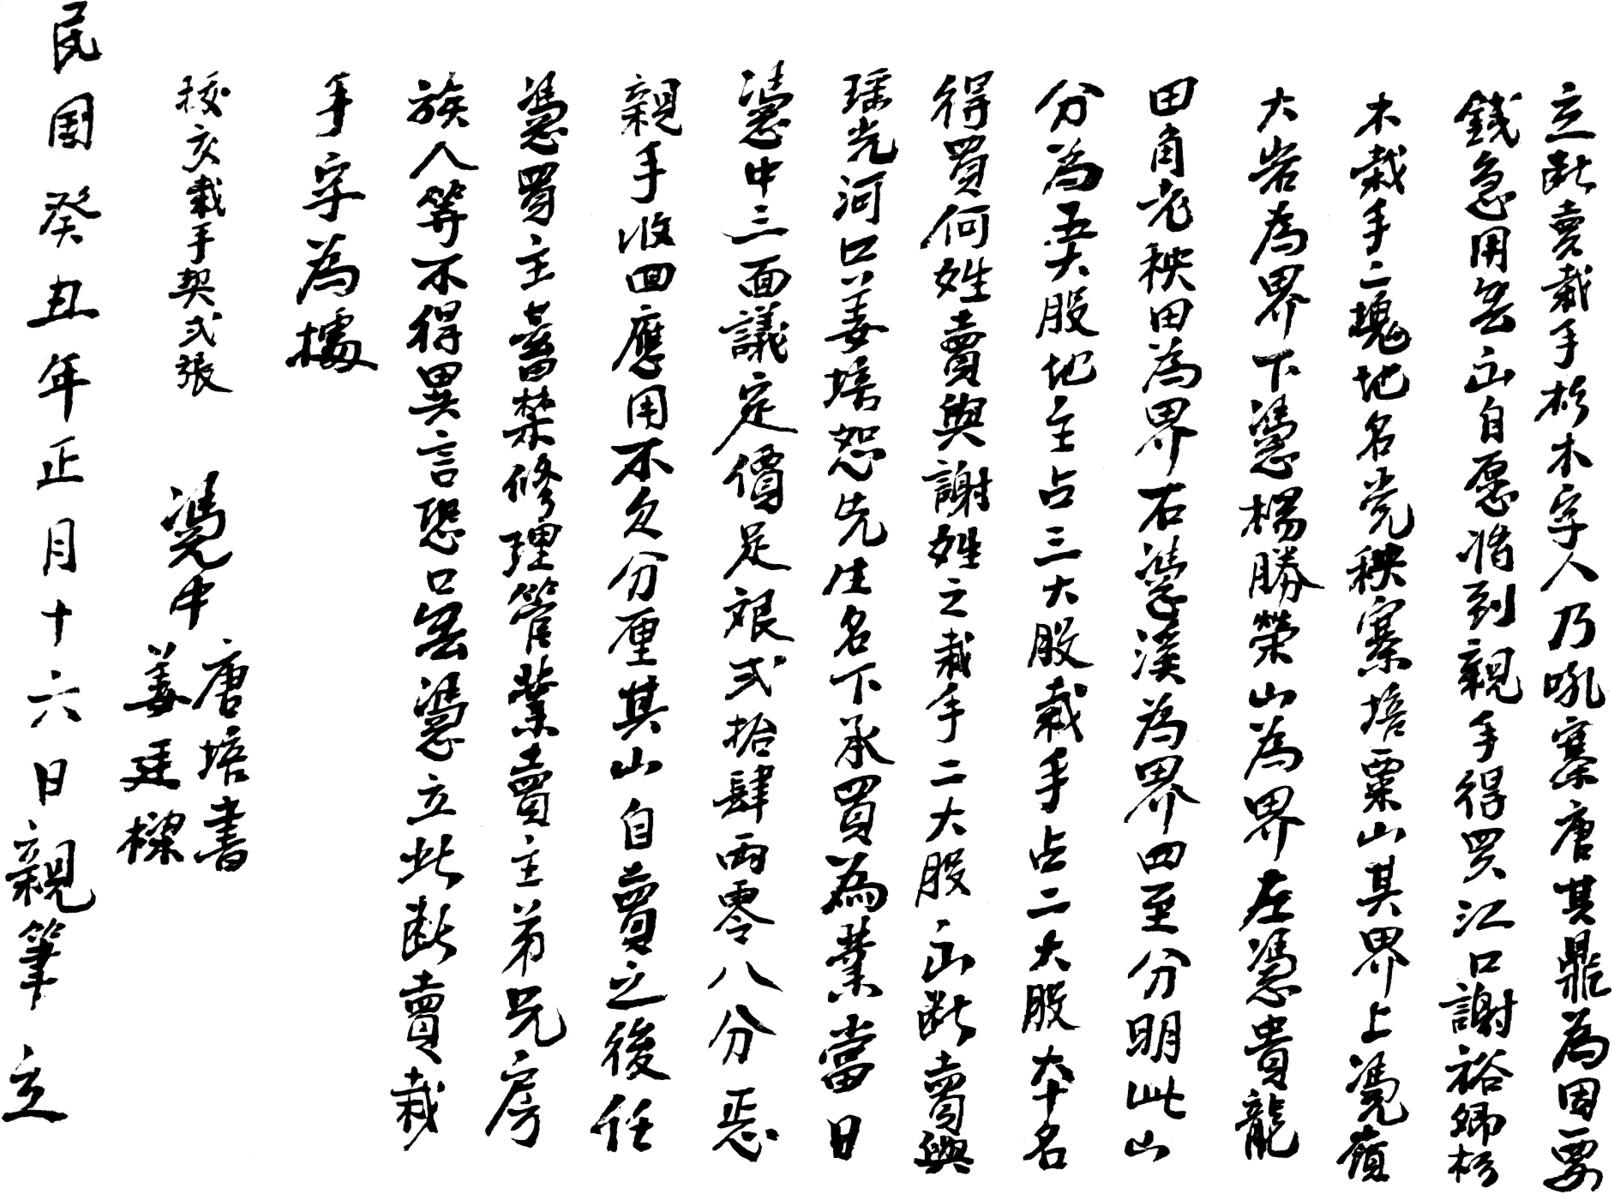 立斷賣栽手杉木字人乃吼寨唐其鼎為因要
錢急用無出自愿將到親手得買江口謝裕卿杉
木栽手二塊地名党秧寨培粟山其界上凴嶺
大岩為界下凴楊勝榮山為界左凴貴龍
田角老秧田為界右凴溪為界四至分明此山
分為五大股地主占三大股栽手占二大股本名
得買何姓賣與謝姓之栽手二大股出斷賣與
瑶光河口姜培恕先生名下承買為業當日
凴中三面議定價足銀弍拾肆兩零八分悉
親手收回應用不欠分厘其山自賣之後任
凴買主蓄禁修理管業賣主弟兄房
族人等不得異言恐口無凴立此斷賣栽
手字為據
投交栽手契弍張
凴中 唐培書
姜廷樑
民國癸丑年正月十六日親筆立